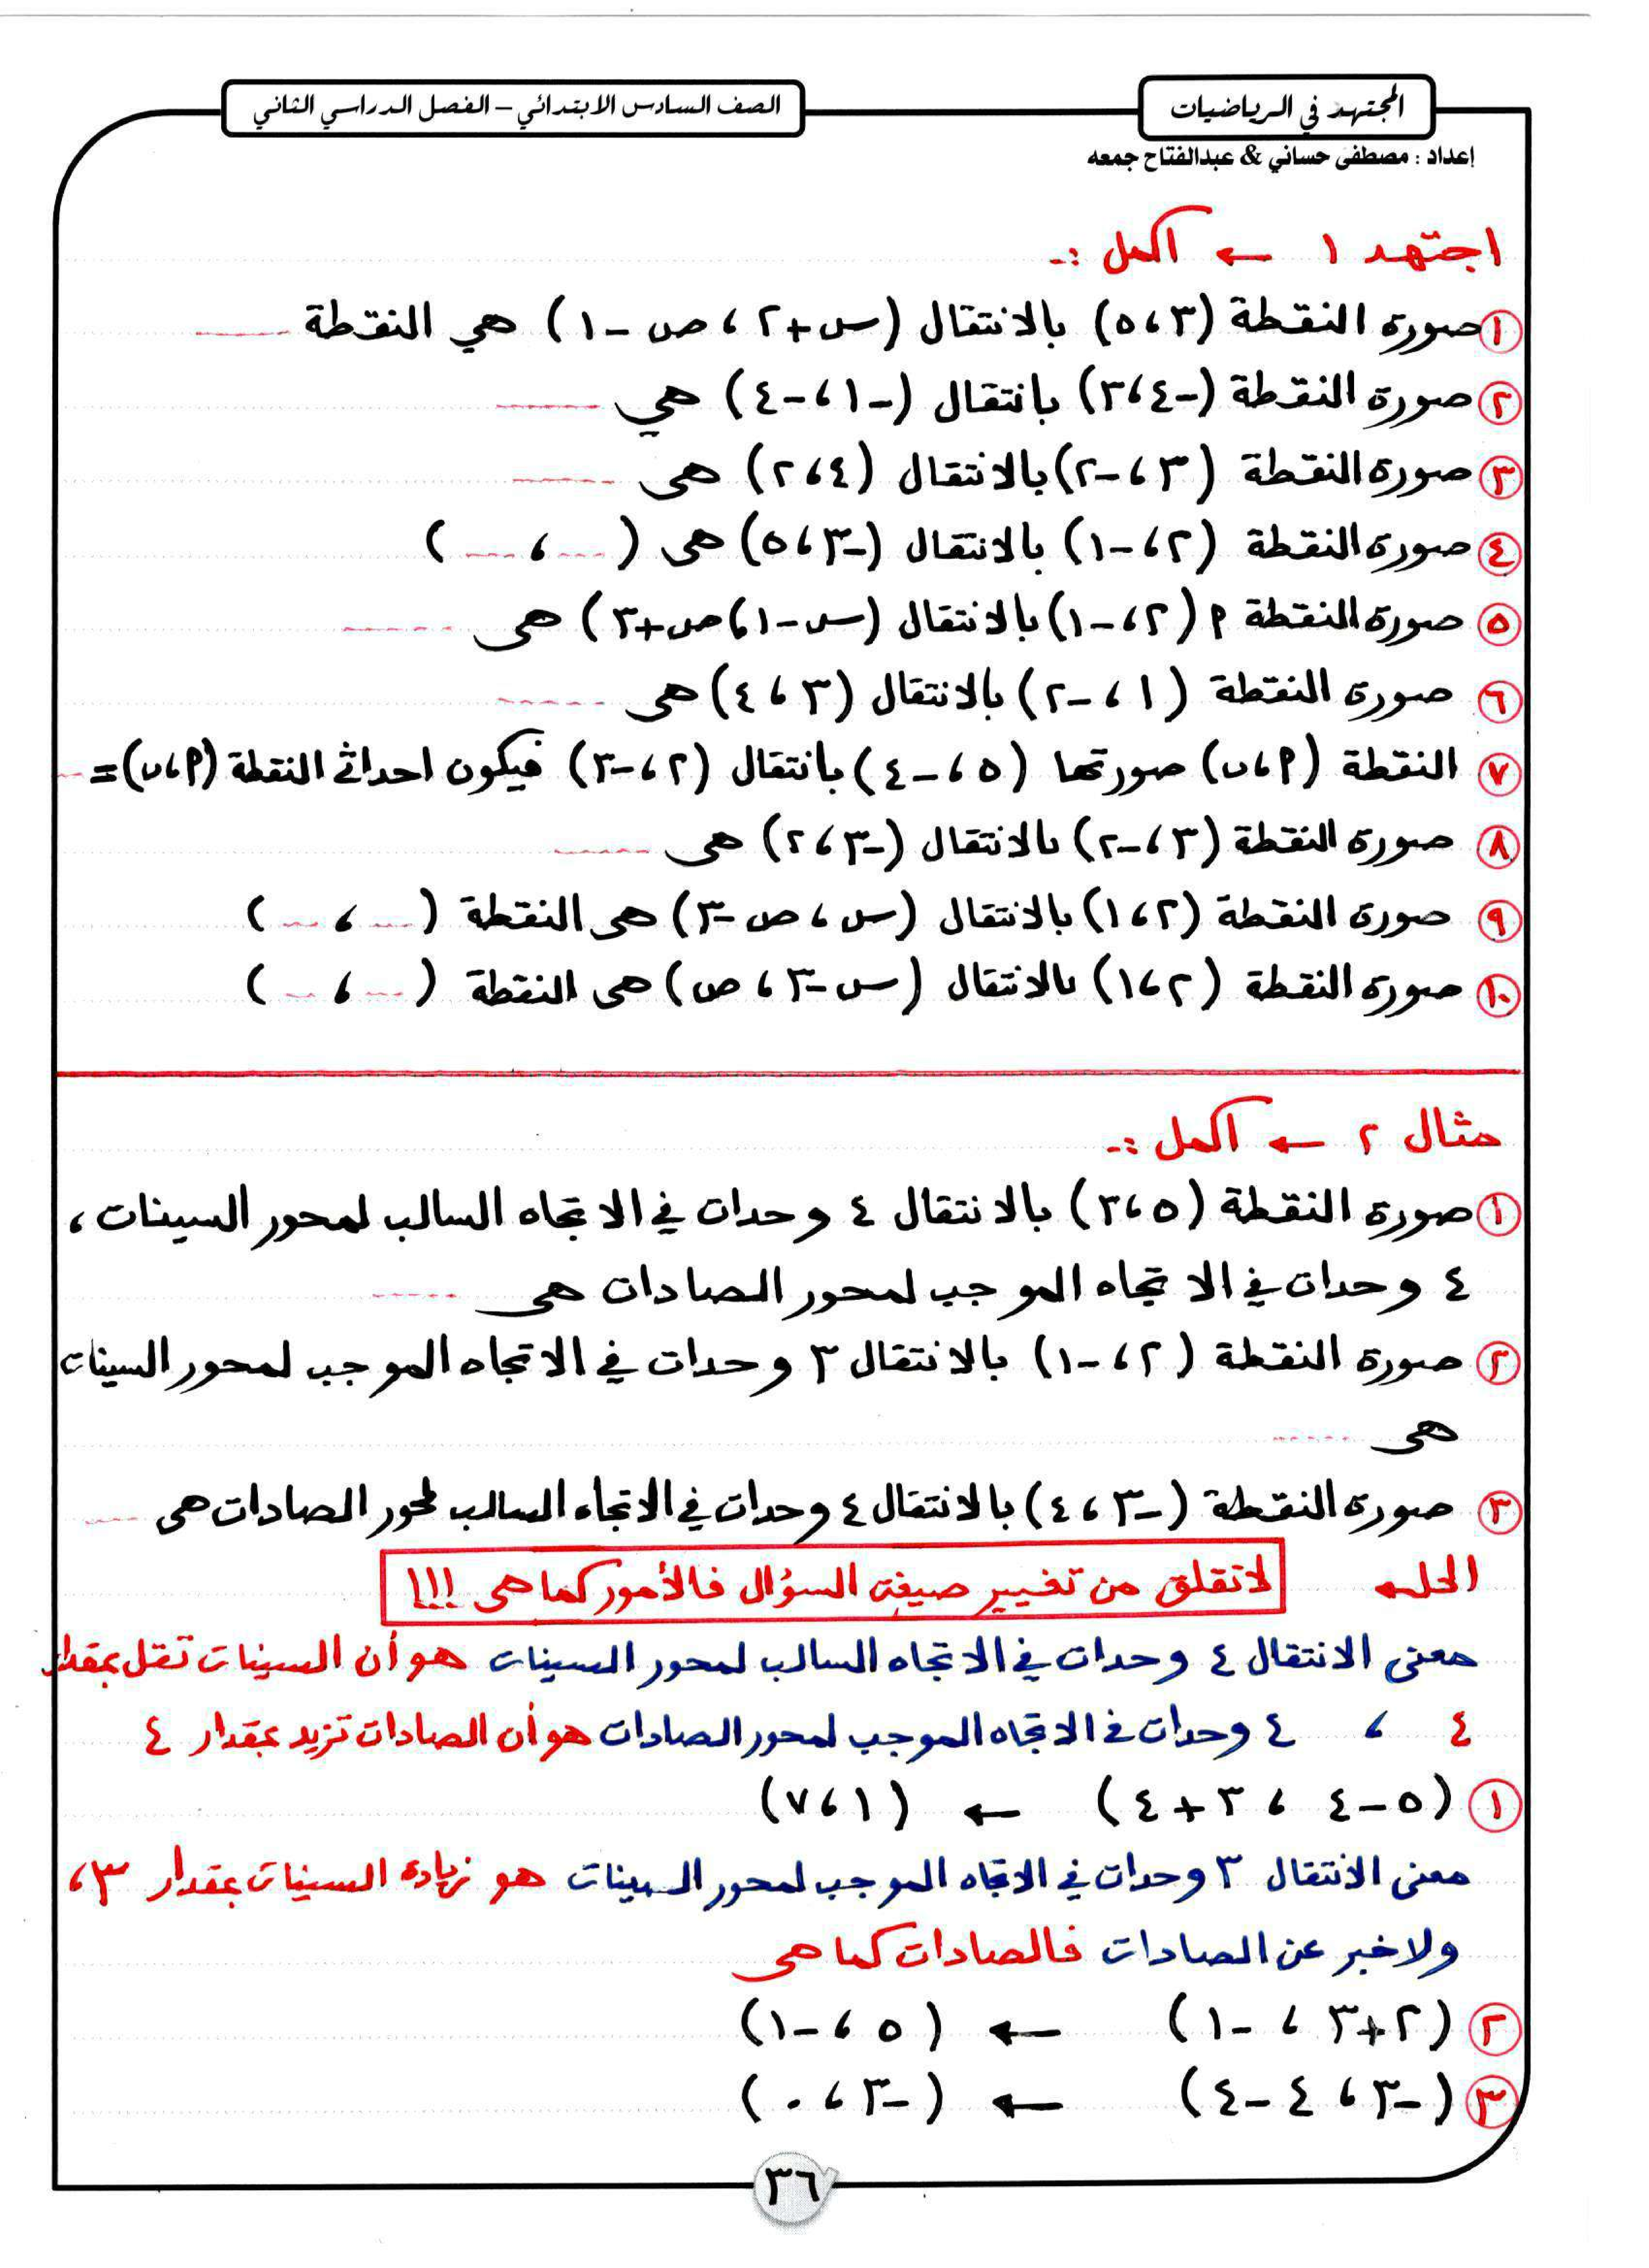 المجتهد في الرياضيات
الصف السادس الابتدائي – الفصل الدراسي الثاني
إعداد : مصطفى حساني & عبدالفتاح جمعه
اجتهد ١ ← أكمل :-
١ صورة النقطة (٣ ، ٥) بالانتقال (س + ٢ ، ص - ١) هي النقطة ......
٢ صورة النقطة (-٤ ، ٣) بانتقال (-١ ، -٤) هي ......
٣ صورة النقطة (٣ ، -٢) بالانتقال (٤ ، ٢) هى ......
٤ صورة النقطة (٢ ، -١) بالانتقال (-٣ ، ٥) هى (... ، ...)
٥ صورة النقطة م (٢ ، -١) بالانتقال (س - ١ ، ص + ٣) هى ......
٦ صورة النقطة (١ ، -٢) بالانتقال (٣ ، ٤) هى ......
٧ النقطة (م ، ن) صورتها (٥ ، -٤) بانتقال (٢ ، -٣) فيكون احداثى النقطة (م ، ن) = ...
٨ صورة النقطة (٣ ، -٢) بالانتقال (-٣ ، ٢) هى ......
٩ صورة النقطة (٢ ، ١) بالانتقال (س ، ص - ٣) هى النقطة (... ، ...)
١٠ صورة النقطة (٢ ، ١) بالانتقال (س - ٣ ، ص) هى النقطة (... ، ...)
مثال ٢ ← أكمل :-
١ صورة النقطة (٥ ، ٣) بالانتقال ٤ وحدات في الاتجاه السالب لمحور السينات ،
٤ وحدات في الاتجاه الموجب لمحور الصادات هى ......
٢ صورة النقطة (٢ ، -١) بالانتقال ٣ وحدات في الاتجاه الموجب لمحور السينات
هى ......
٣ صورة النقطة (-٣ ، ٤) بالانتقال ٤ وحدات في الاتجاه السالب لمحور الصادات هى ....
الحل ← لا تقلق من تغيير صيغة السؤال فالأمور كما هى !!!
معنى الانتقال ٤ وحدات في الاتجاه السالب لمحور السينات هو أن السينات تقل بمقدار
٤ ، ٤ وحدات في الاتجاه الموجب لمحور الصادات هو أن الصادات تزيد بمقدار ٤
١ (٥ - ٤ ، ٣ + ٤) ← (١ ، ٧)
معنى الانتقال ٣ وحدات في الاتجاه الموجب لمحور السينات هو زيادة السينات بمقدار ٣ ،
ولا خبر عن الصادات فالصادات كما هى
٢ (٢ + ٣ ، -١) ← (٥ ، -١)
٣ (-٣ ، ٤ - ٤) ← (-٣ ، ٠)
٣٦